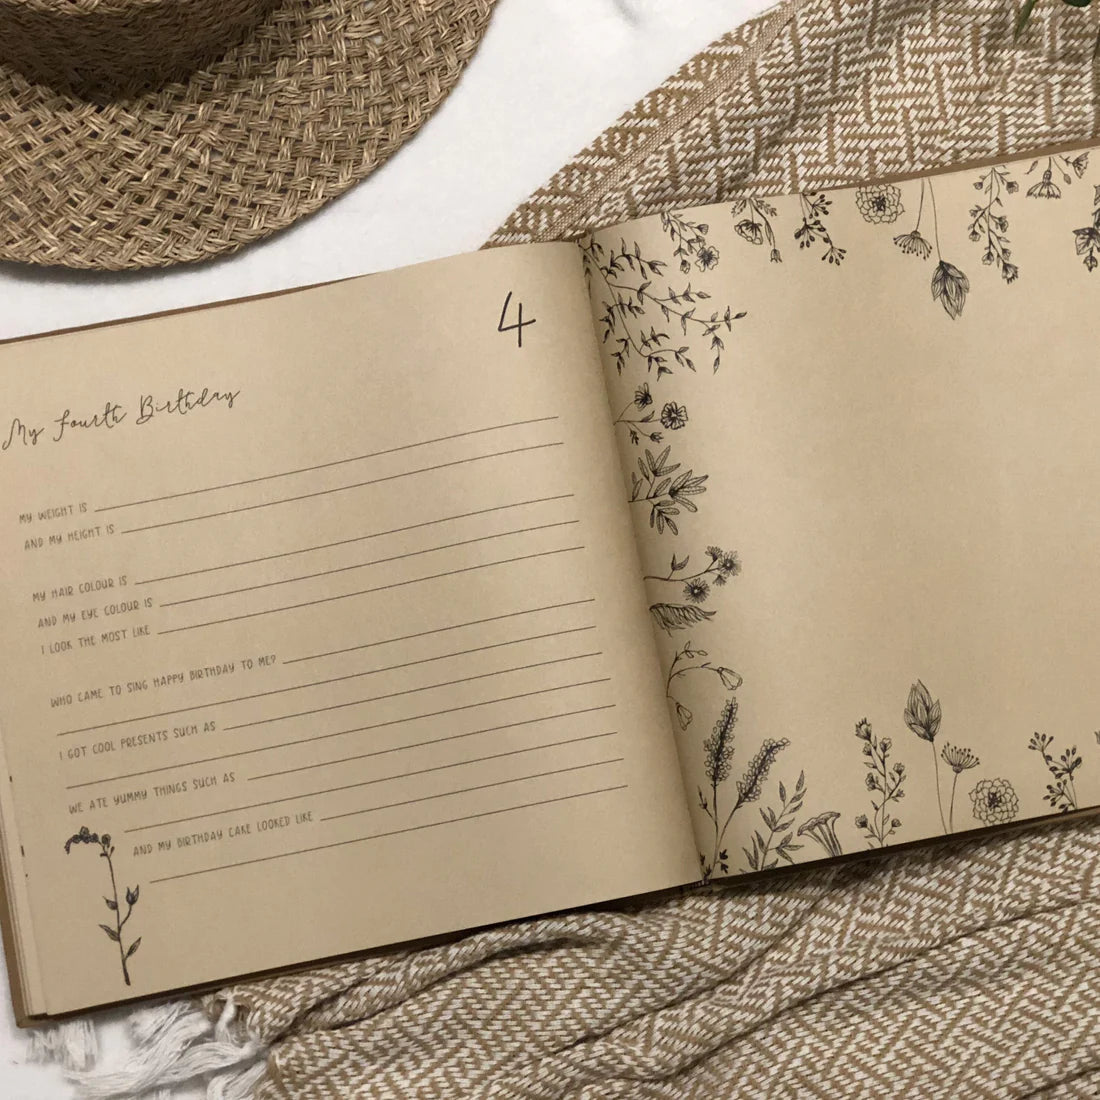 4
My Fourth Birthday
MY WEIGHT IS
AND MY HEIGHT IS
MY HAIR COLOUR IS
AND MY EYE COLOUR IS
I LOOK THE MOST LIKE
WHO CAME TO SING HAPPY BIRTHDAY TO ME?
I GOT COOL PRESENTS SUCH AS
WE ATE YUMMY THINGS SUCH AS
AND MY BIRTHDAY CAKE LOOKED LIKE